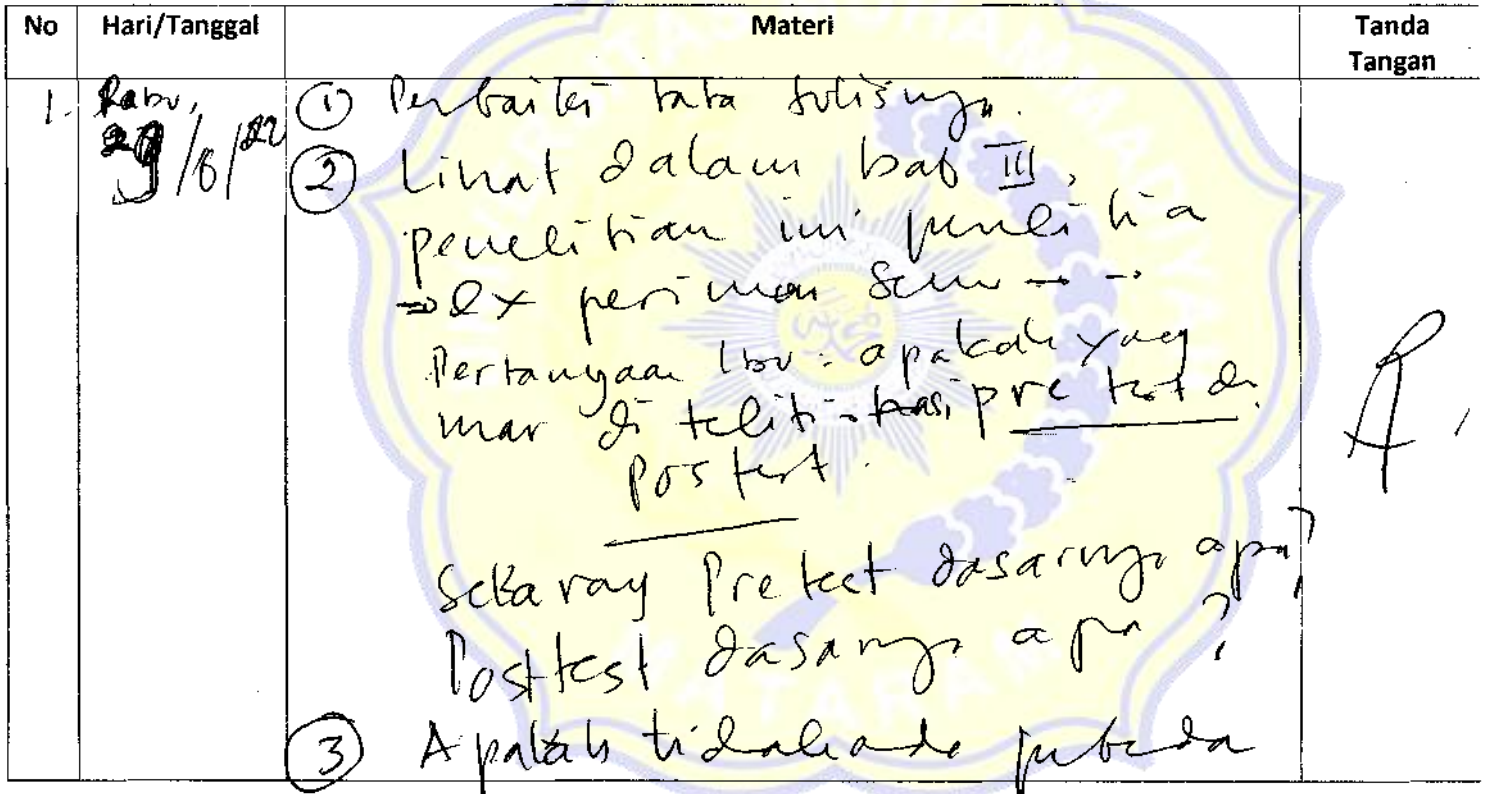 No Hari/Tanggal Materi Tanda Tangan
1. Rabu, ① Perbaiki tata tulisnya.
/6/22 ② Lihat dalam bab III,
penelitian ini penelitia
→ experimen Semu → →
Pertanyaan Ibu: apakah yang
mar di teliti pre test dn
postest.
Sekarang Pretest dasarnya apa?
Posttest dasarnya apa?
③ Apakah tidak ada
UNIVERSITAS MUHAMMADIYAH
MATARAM